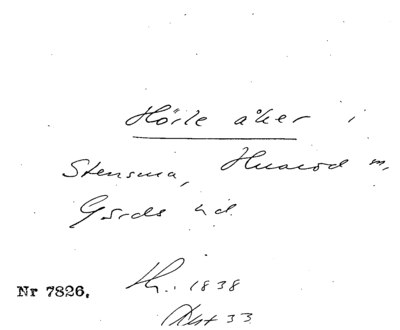 Hörle åker i
Stensma, Huarod m,
Gärds hd.
Nr 7826.
1838
33